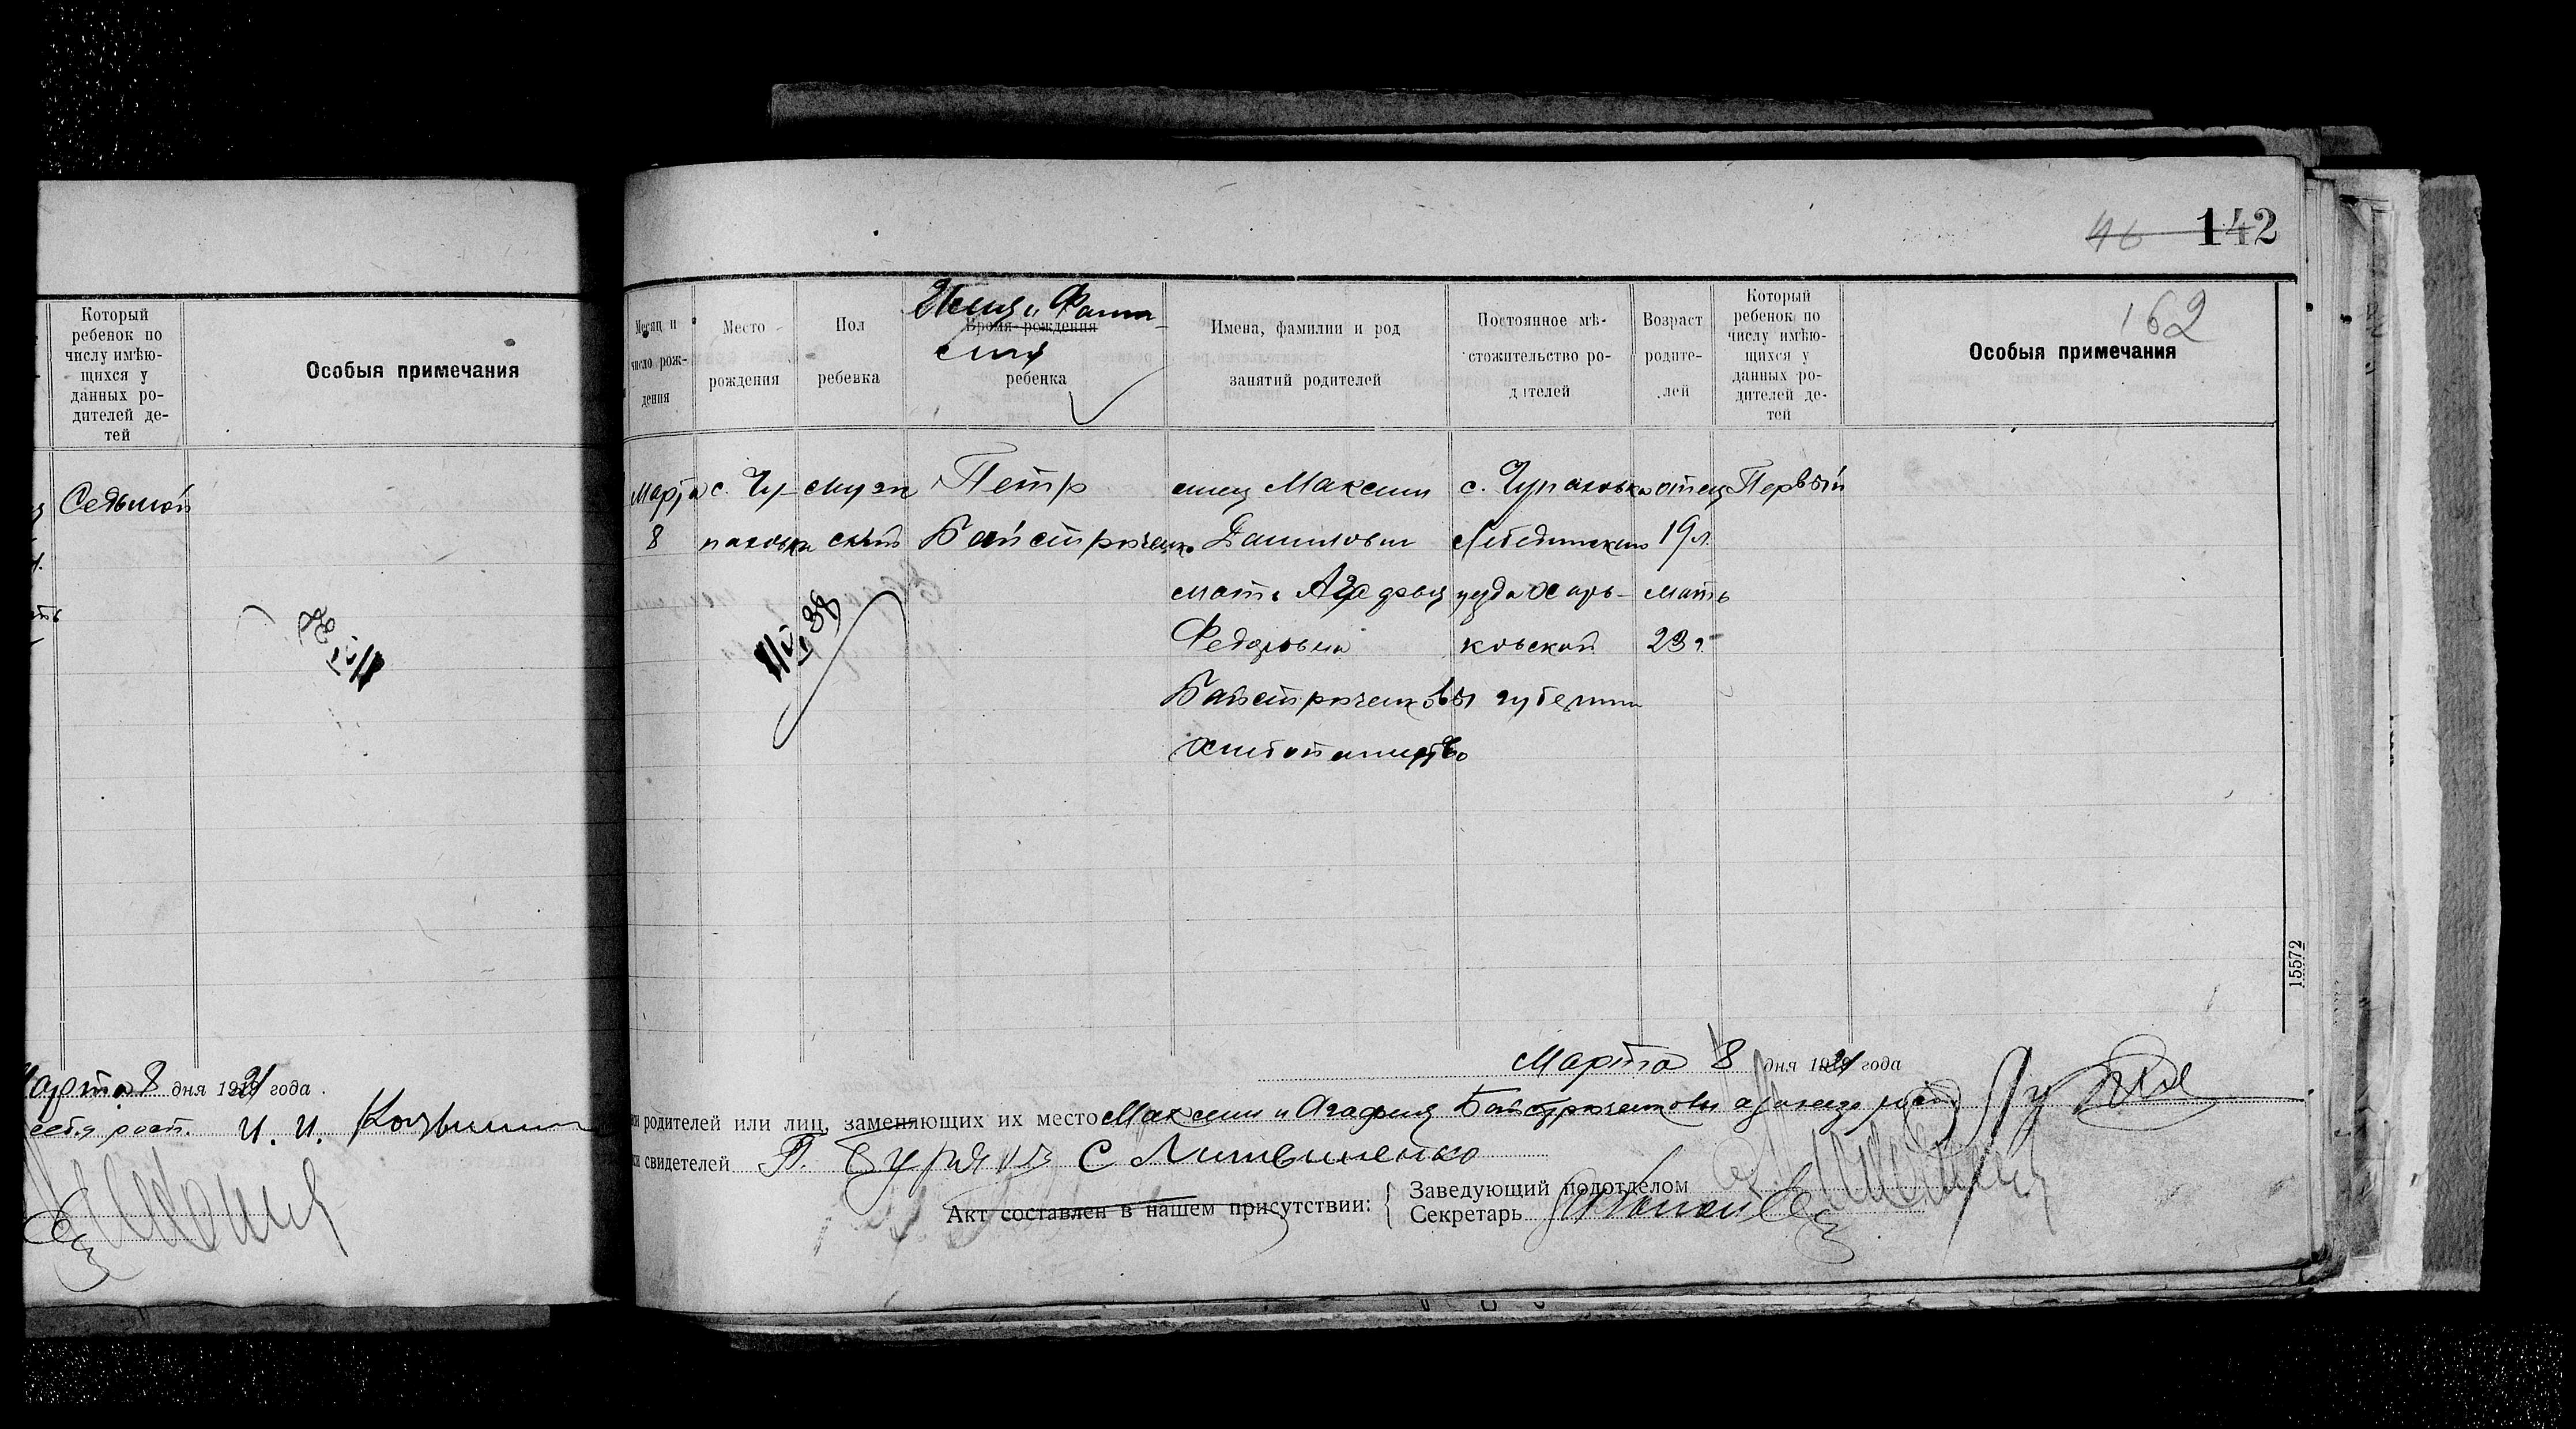 Который
ребенок по
числу имѣю-
щихся у
данных ро-
дителей де-
тей
Особыя примечания
Седьмой
Марта 8 дня 1921 года.
себя росп. И. И.
142
46
162
Имя и Фами-
лия
Месяц и
число рож-
дения
Место
рождения
Пол
ребенка
Время рождения
ребенка
Имена, фамилии и род
занятий родителей
Постоянное мѣ-
стожительство ро-
дителей
Возраст
родите-
лей
Который
ребенок по
числу имѣю-
щихся у
данных ро-
дителей де-
тей
Особыя примечания
Марта
8
с. Чу-
паховка
муже
ский
Петр
Байстрюченко
отец Максим
Данилович
мать Агафия
Федоровна
Байстрюченковы
хлебопашество
с. Чупаховка
Лебединскаго
уезда Харь-
ковской
губернии
отец
19 л.
мать
23 г.
Первый
15572
Марта 8 дня 1921 года
родителей или лиц, заменяющих их место Максим и Агафия Байстрюченковы а за
свидетелей П. С Литвиненко
Акт составлен в нашем присутствии:
Заведующий подотделом
Секретарь